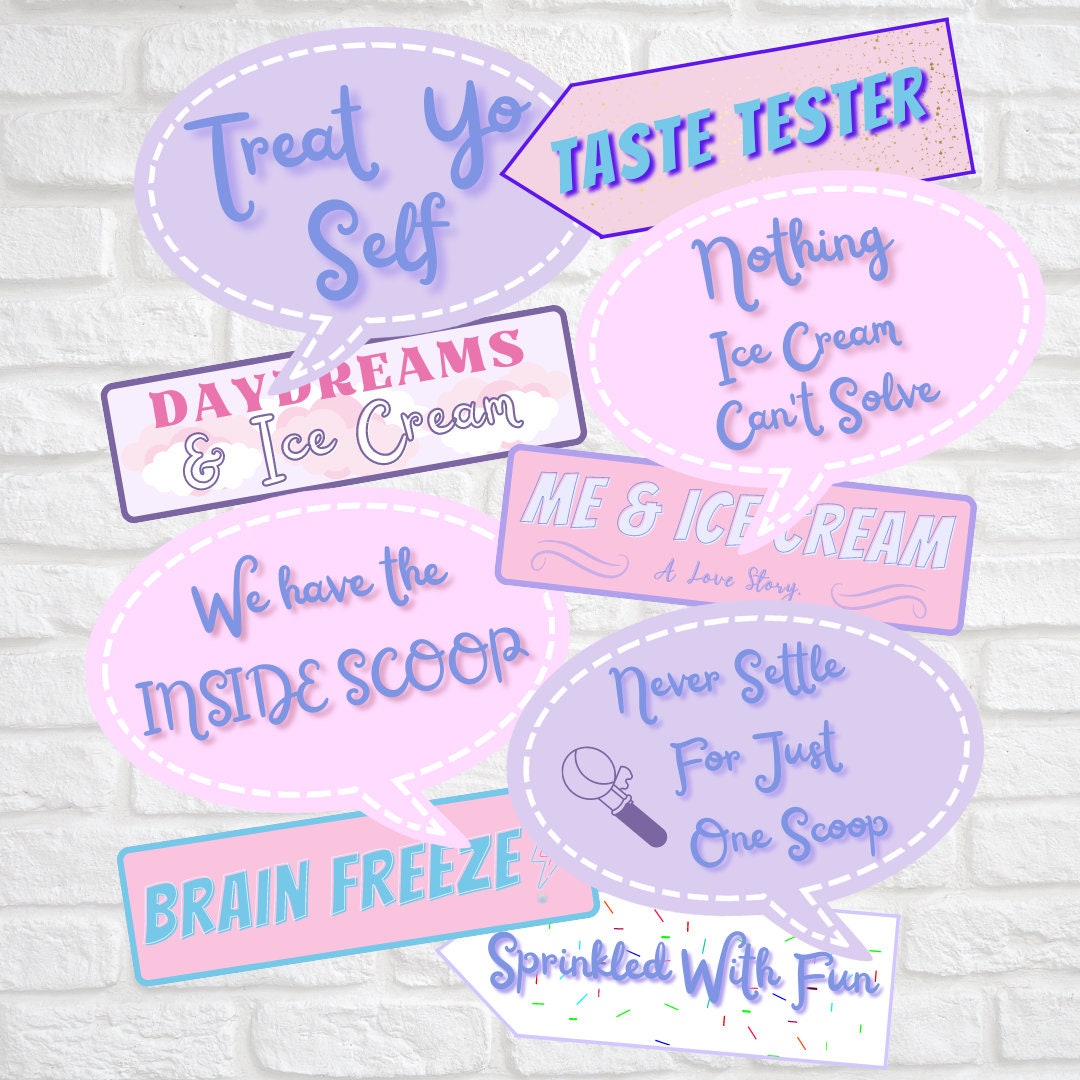 Treat Yo
Self
TASTE TESTER
Nothing
Ice Cream
Can't Solve
DAYDREAMS
& Ice Cream
ME & ICE CREAM
A Love Story.
We have the
INSIDE SCOOP
Never Settle
For Just
One Scoop
BRAIN FREEZE
Sprinkled With Fun